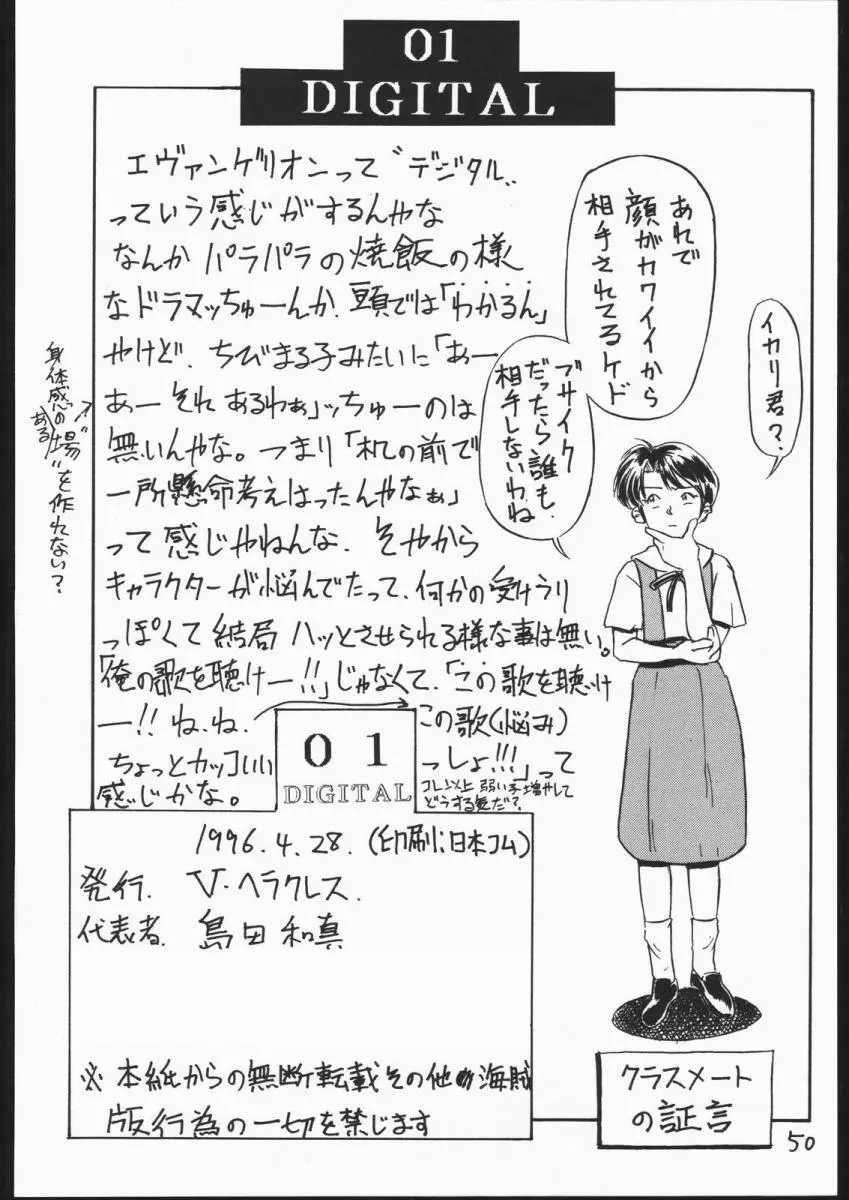 01
DIGITAL
エヴァンゲリオンって〝デジタル〟
っていう感じがするんやな
なんか パラパラの焼飯の様
なドラマッちゅーんか、頭では「わかるん」
やけど、ちびまる子みたいに「あぁー
あー それ あるわぁ」ッちゅーのは
無いんやな。つまり「机の前で
一所懸命考えはったんやなぁ」
って 感じやねんな、そやから
キャラクターが悩んでたって、何かの受けうり
っぽくて 結局 ハッとさせられる様な事は無い。
「俺の歌を聴けー!!」じゃなくて、「この歌を聴け
ー!! ね、ね、 この歌(悩み)
ちょっとカッコいい っしょ!!!」って
感じかな。
コレ以上 弱い子増やして
どうする気だ?
身体感の
ある
〝場〟を作れない?
あれで
顔がカワイイから
相手されてるケド
ブサイク
だったら誰も
相手しないわね
イカリ君?
01
DIGITAL
1996.4.28.(印刷:日本コム)
発行. V・ヘラクレス.
代表者. 島田和真
※ 本紙からの無断転載その他の海賊
版行為の一切を禁じます
クラスメート
の証言
50